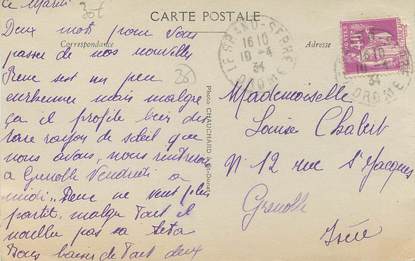 Ce Mardi
307
CARTE POSTALE
Correspondance
Adresse
Deux mots pour vous
passer de nos nouvelles
René est un peu
enrhumé mais malgré
ça il profite bien du
rare rayon de soleil que
nous avons, nous rentrons
à Grenoble Vendredi à
midi. René ne veut plus
partir, malgré tout il
pas sa
Bons de tout deux
LE GRAND-SERRE
1610
10-4
34
DROME
40c
Photo CHAUCHARD
Mademoiselle
Louise Chabert
N° 12 rue St Jacques
Grenoble
Isère